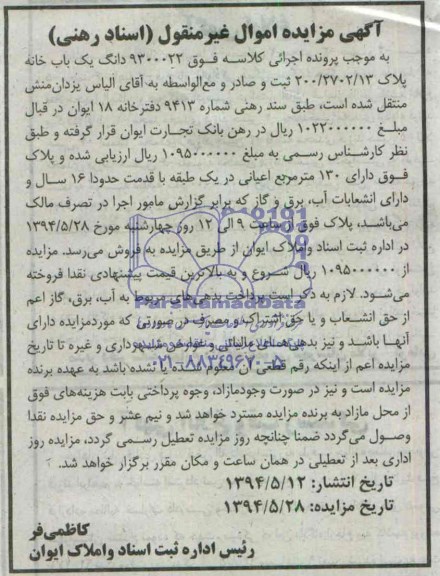 آگهی مزایده اموال غیرمنقول (اسناد رهنی)
به موجب پرونده اجرائی کلاسه فـوق ۹۳۰۰۰۲۲ دانگ یک باب خانه
پلاک ۲۰۰/۲۷۰۲/۱۳ ثبت و صادر و مع‌الواسطه به آقای الیاس یزدان‌منش
منتقل شده است، طبق سند رهنی شماره ۹۴۱۳ دفترخانه ۱۸ ایوان در قبال
مبلـغ ۱۰۲۲۰۰۰۰۰۰ ریال در رهن بانک تجـارت ایوان قرار گرفته و طبق
نظر کارشـناس رسـمی به مبلغ ۱۰۹۵۰۰۰۰۰۰ ریال ارزیابی شده و پلاک
فـوق دارای ۱۳۰ مترمربع اعیانی در یک طبقه با قدمت حدودا ۱۶ سـال و
دارای انشعابات آب، برق و گاز که برابر گزارش مامور اجرا در تصرف مالک
می‌باشـد، پلاک فوق از ساعت ۹ الی ۱۲ روز چهارشنبه مورخ ۱۳۹۴/۵/۲۸
در اداره ثبت اسناد واملاک ایوان از طریق مزایده به فروش می‌رسد. مزایده
از ۱۰۹۵۰۰۰۰۰۰ ریال شـروع و به بالاترین قیمت پیشنهادی نقدا فروخته
می‌شـود. لازم به ذکر است پرداخت بدهی‌های مربوط به آب، برق، گاز اعم
از حق انشـعاب و یا حق اشتراک و مصرف در صورتی که موردمزایده دارای
آنها باشـد و نیز بدهی‌های مالیاتی و عوارض شهرداری و غیره تا تاریخ
مزایده اعم از اینکه رقم قطعی آن معلوم شـده یا نشده باشد به عهده برنده
مزایده است و نیز در صورت وجودمازاد، وجوه پرداختی بابت هزینه‌های فوق
از محل مازاد به برنده مزایده مسترد خواهد شد و نیم عشر و حق مزایده نقدا
وصـول می‌گردد ضمنا چنانچه روز مزایده تعطیل رسـمی گردد، مزایده روز
اداری بعد از تعطیلی در همان ساعت و مکان مقرر برگزار خواهد شد.
تاریخ انتشار: ۱۳۹۴/۵/۱۲
تاریخ مزایده: ۱۳۹۴/۵/۲۸
کاظمی‌فر
رئیس اداره ثبت اسناد واملاک ایوان
۰۲۱-۸۸۳۴۹۶۷۰-۵